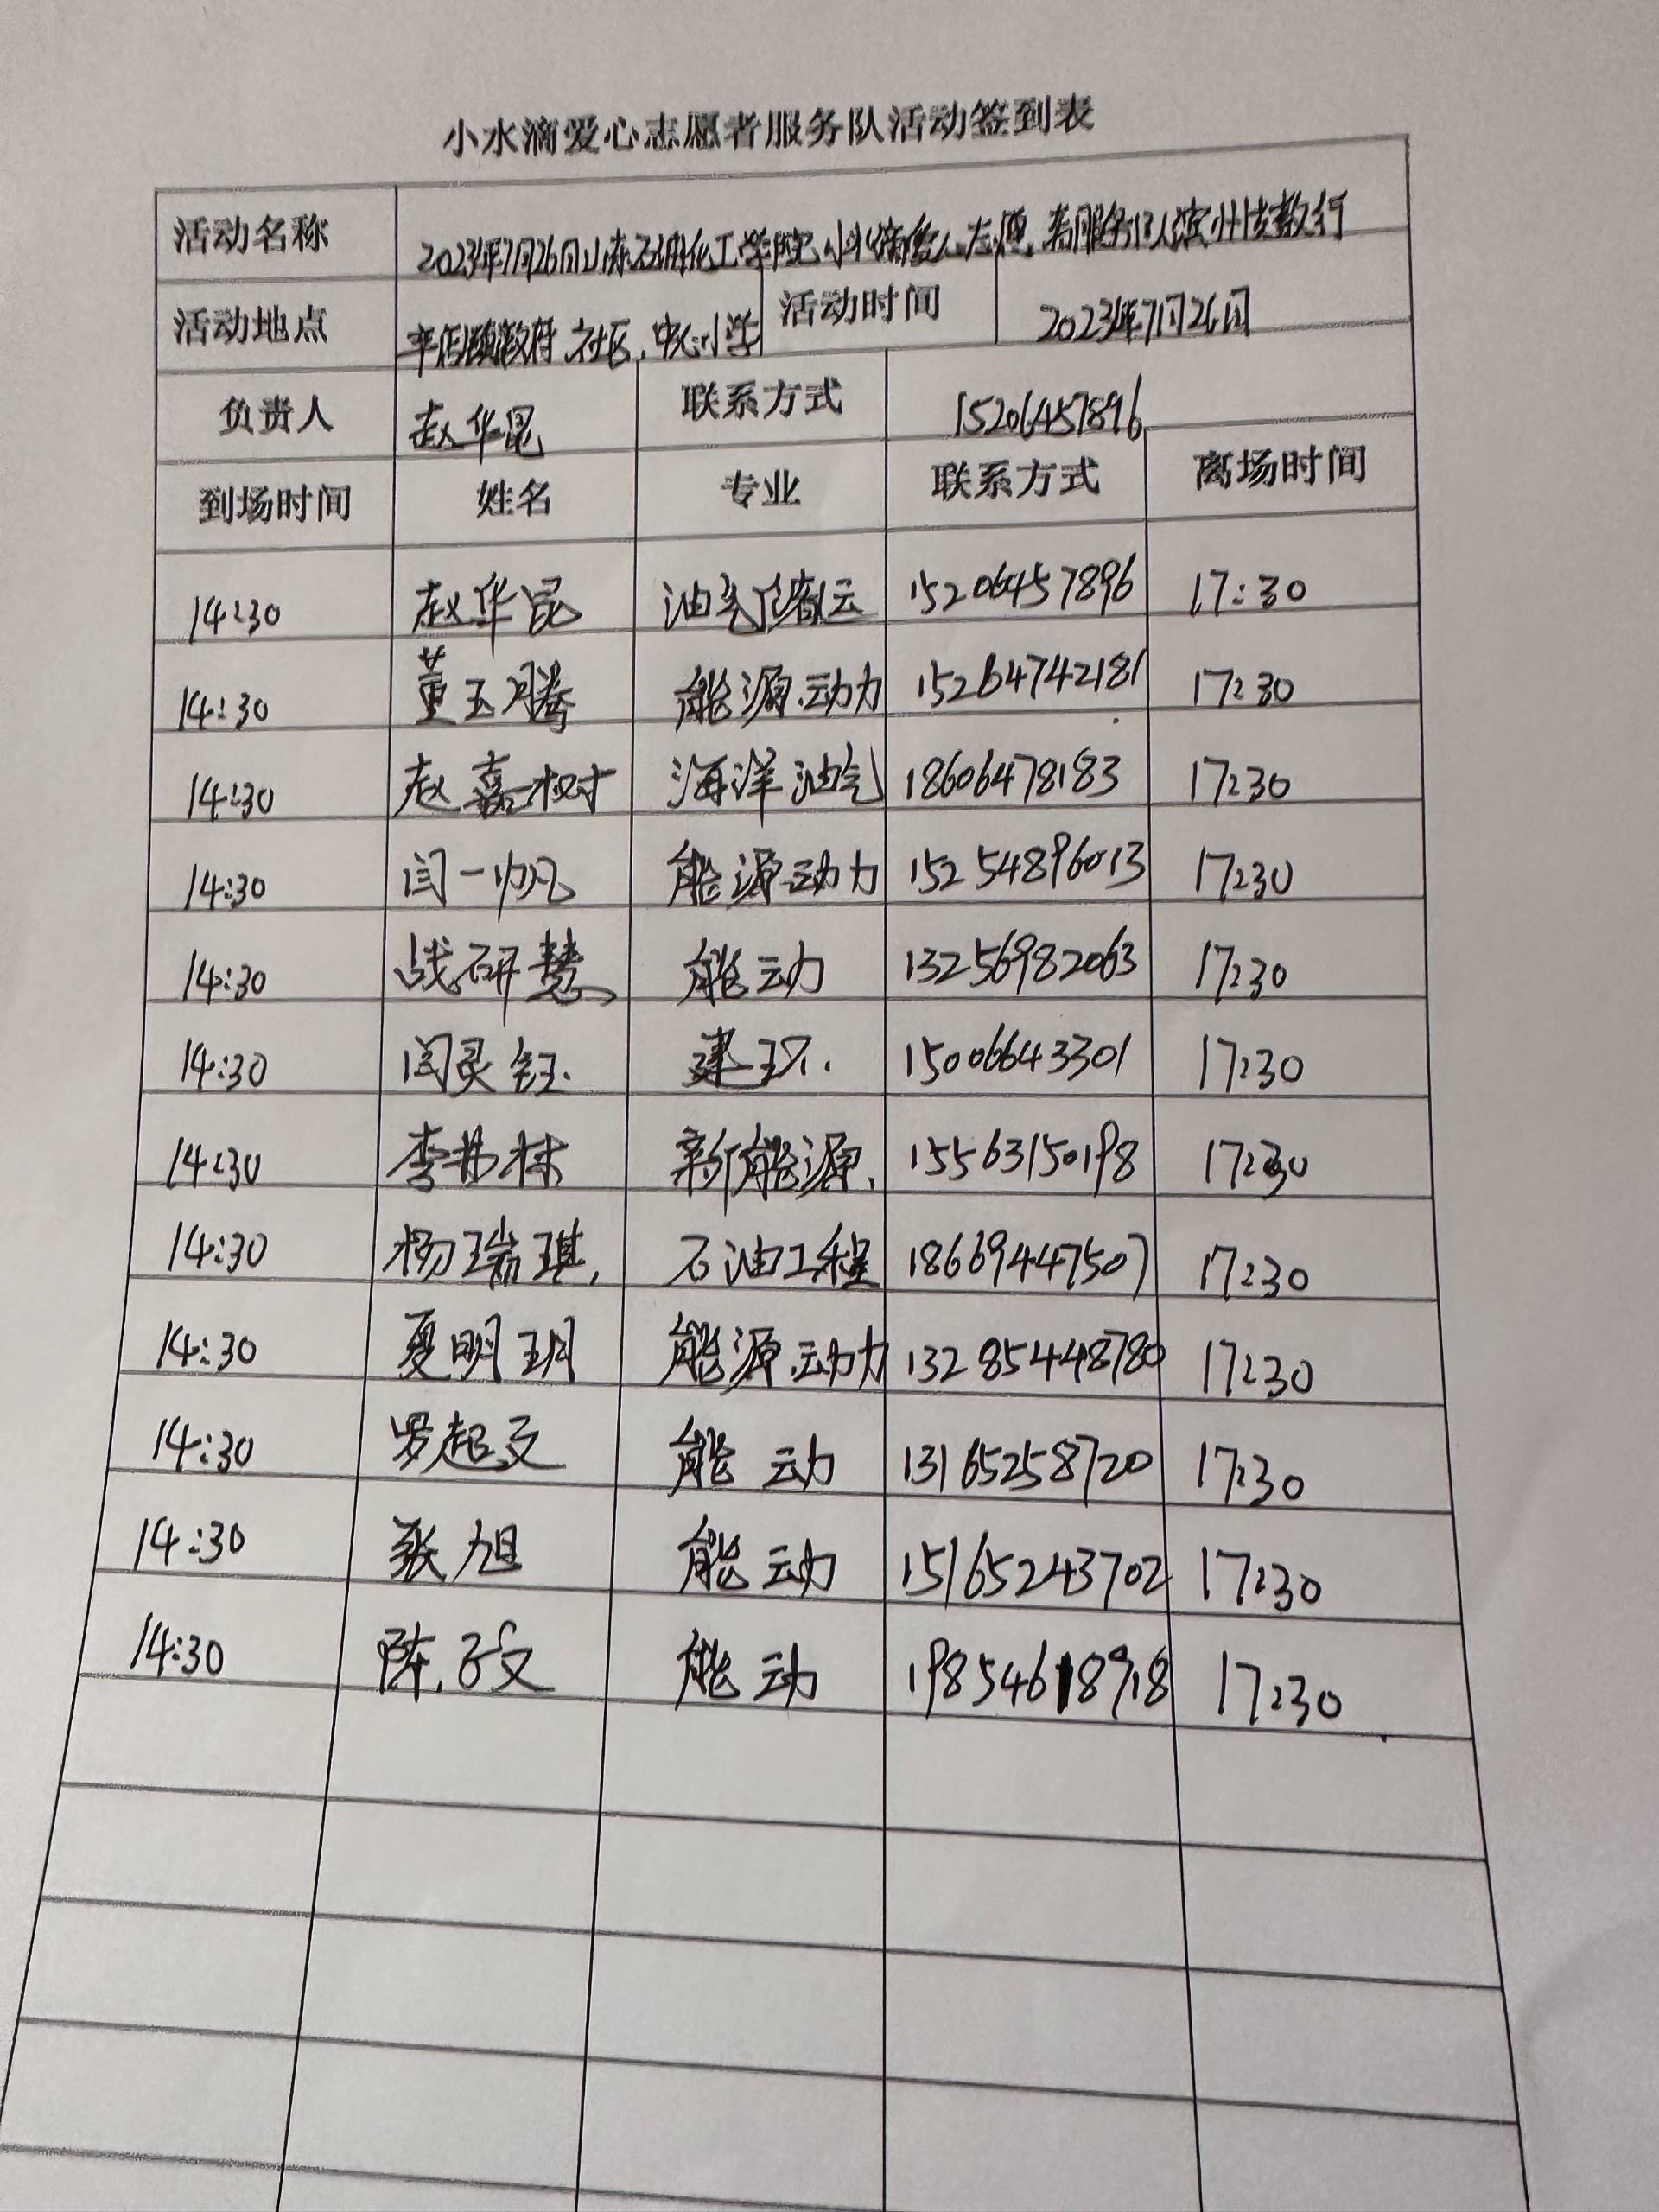 小水滴爱心志愿者服务队活动签到表
活动名称 2023年7月26日山东石油化工学院小水滴爱心志愿者服务队滨州支教行
活动地点 辛店镇政府、社区、中心小学 活动时间 2023年7月26日
负责人 赵华昆 联系方式 15206457896
到场时间 姓名 专业 联系方式 离场时间
14:30 赵华昆 油气储运 15206457896 17:30
14:30 董玉腾 能源动力 15264742181 17:30
14:30 赵嘉树 海洋油气 18606478183 17:30
14:30 闫一帆 能源动力 15254896013 17:30
14:30 战研慧 能动 13256982063 17:30
14:30 闫灵钰 建环 15006643301 17:30
14:30 李林 新能源 15563150198 17:30
14:30 杨瑞琪 石油工程 18669447507 17:30
14:30 夏明玥 能源动力 13285448780 17:30
14:30 罗起文 能动 13165258720 17:30
14:30 张旭 能动 15165243702 17:30
14:30 陈孜文 能动 19854618918 17:30